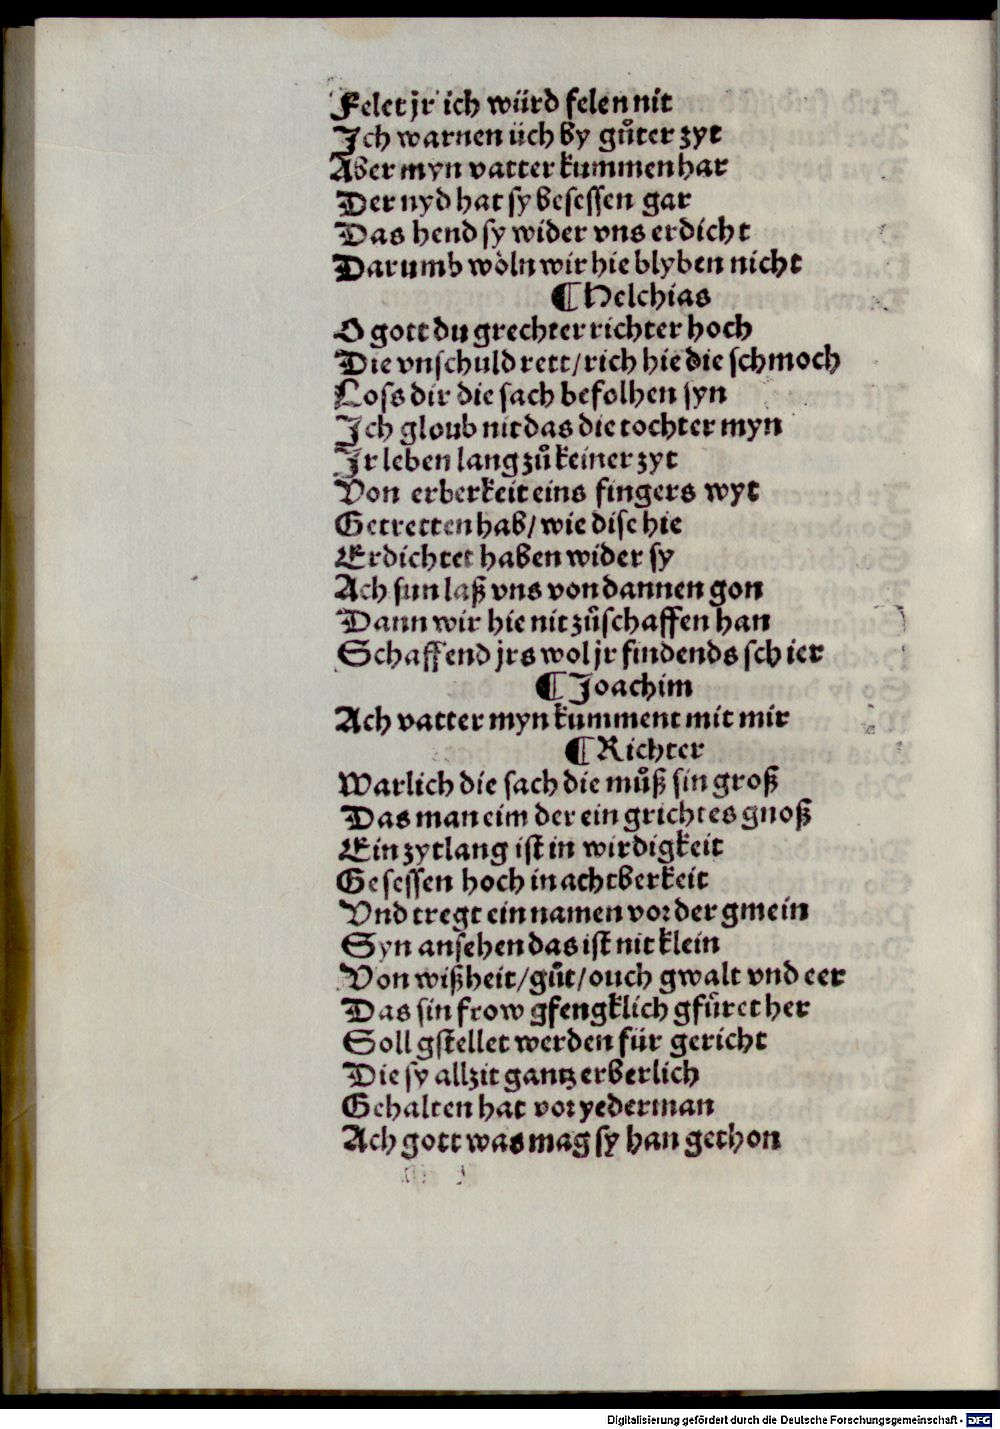 Felet jr ich würd felen nit
Ich warnen üch by gůter zyt
Aber myn vatter kummen har
Der nyd hat sy besessen gar
Das hend sy wider vns erdicht
Darumb wöln wir hie blyben nicht
¶ Helchias
O gott du grechter richter hoch
Die vnschuld rett/ rich hie die schmoch
Loss dir die sach befolhen syn
Ich gloub nit das die tochter myn
Ir leben lang zů keiner zyt
Von erberkeit eins fingers wyt
Getretten hab/ wie dise hie
Erdichtet haben wider sy
Ach sun laß vns von dannen gon
Dann wir hie nit zůschaffen han
Schaffend jrs wol jr findends schier
¶ Joachim
Ach vatter myn kumment mit mir
¶ Richter
Warlich die sach die můß sin groß
Das man eim der ein grichtes gnoß
Ein zytlang ist in wirdigkeit
Gesessen hoch in achtberkeit
Vnd tregt ein namen vor der gmein
Syn ansehen das ist nit klein
Von wißheit/ gůt/ ouch gwalt vnd eer
Das sin frow gfengklich gfůret her
Soll gstellet werden für gericht
Die sy allzit gantz erberlich
Gehalten hat vor yederman
Ach gott was mag sy han gethon
Digitalisierung gefördert durch die Deutsche Forschungsgemeinschaft - DFG